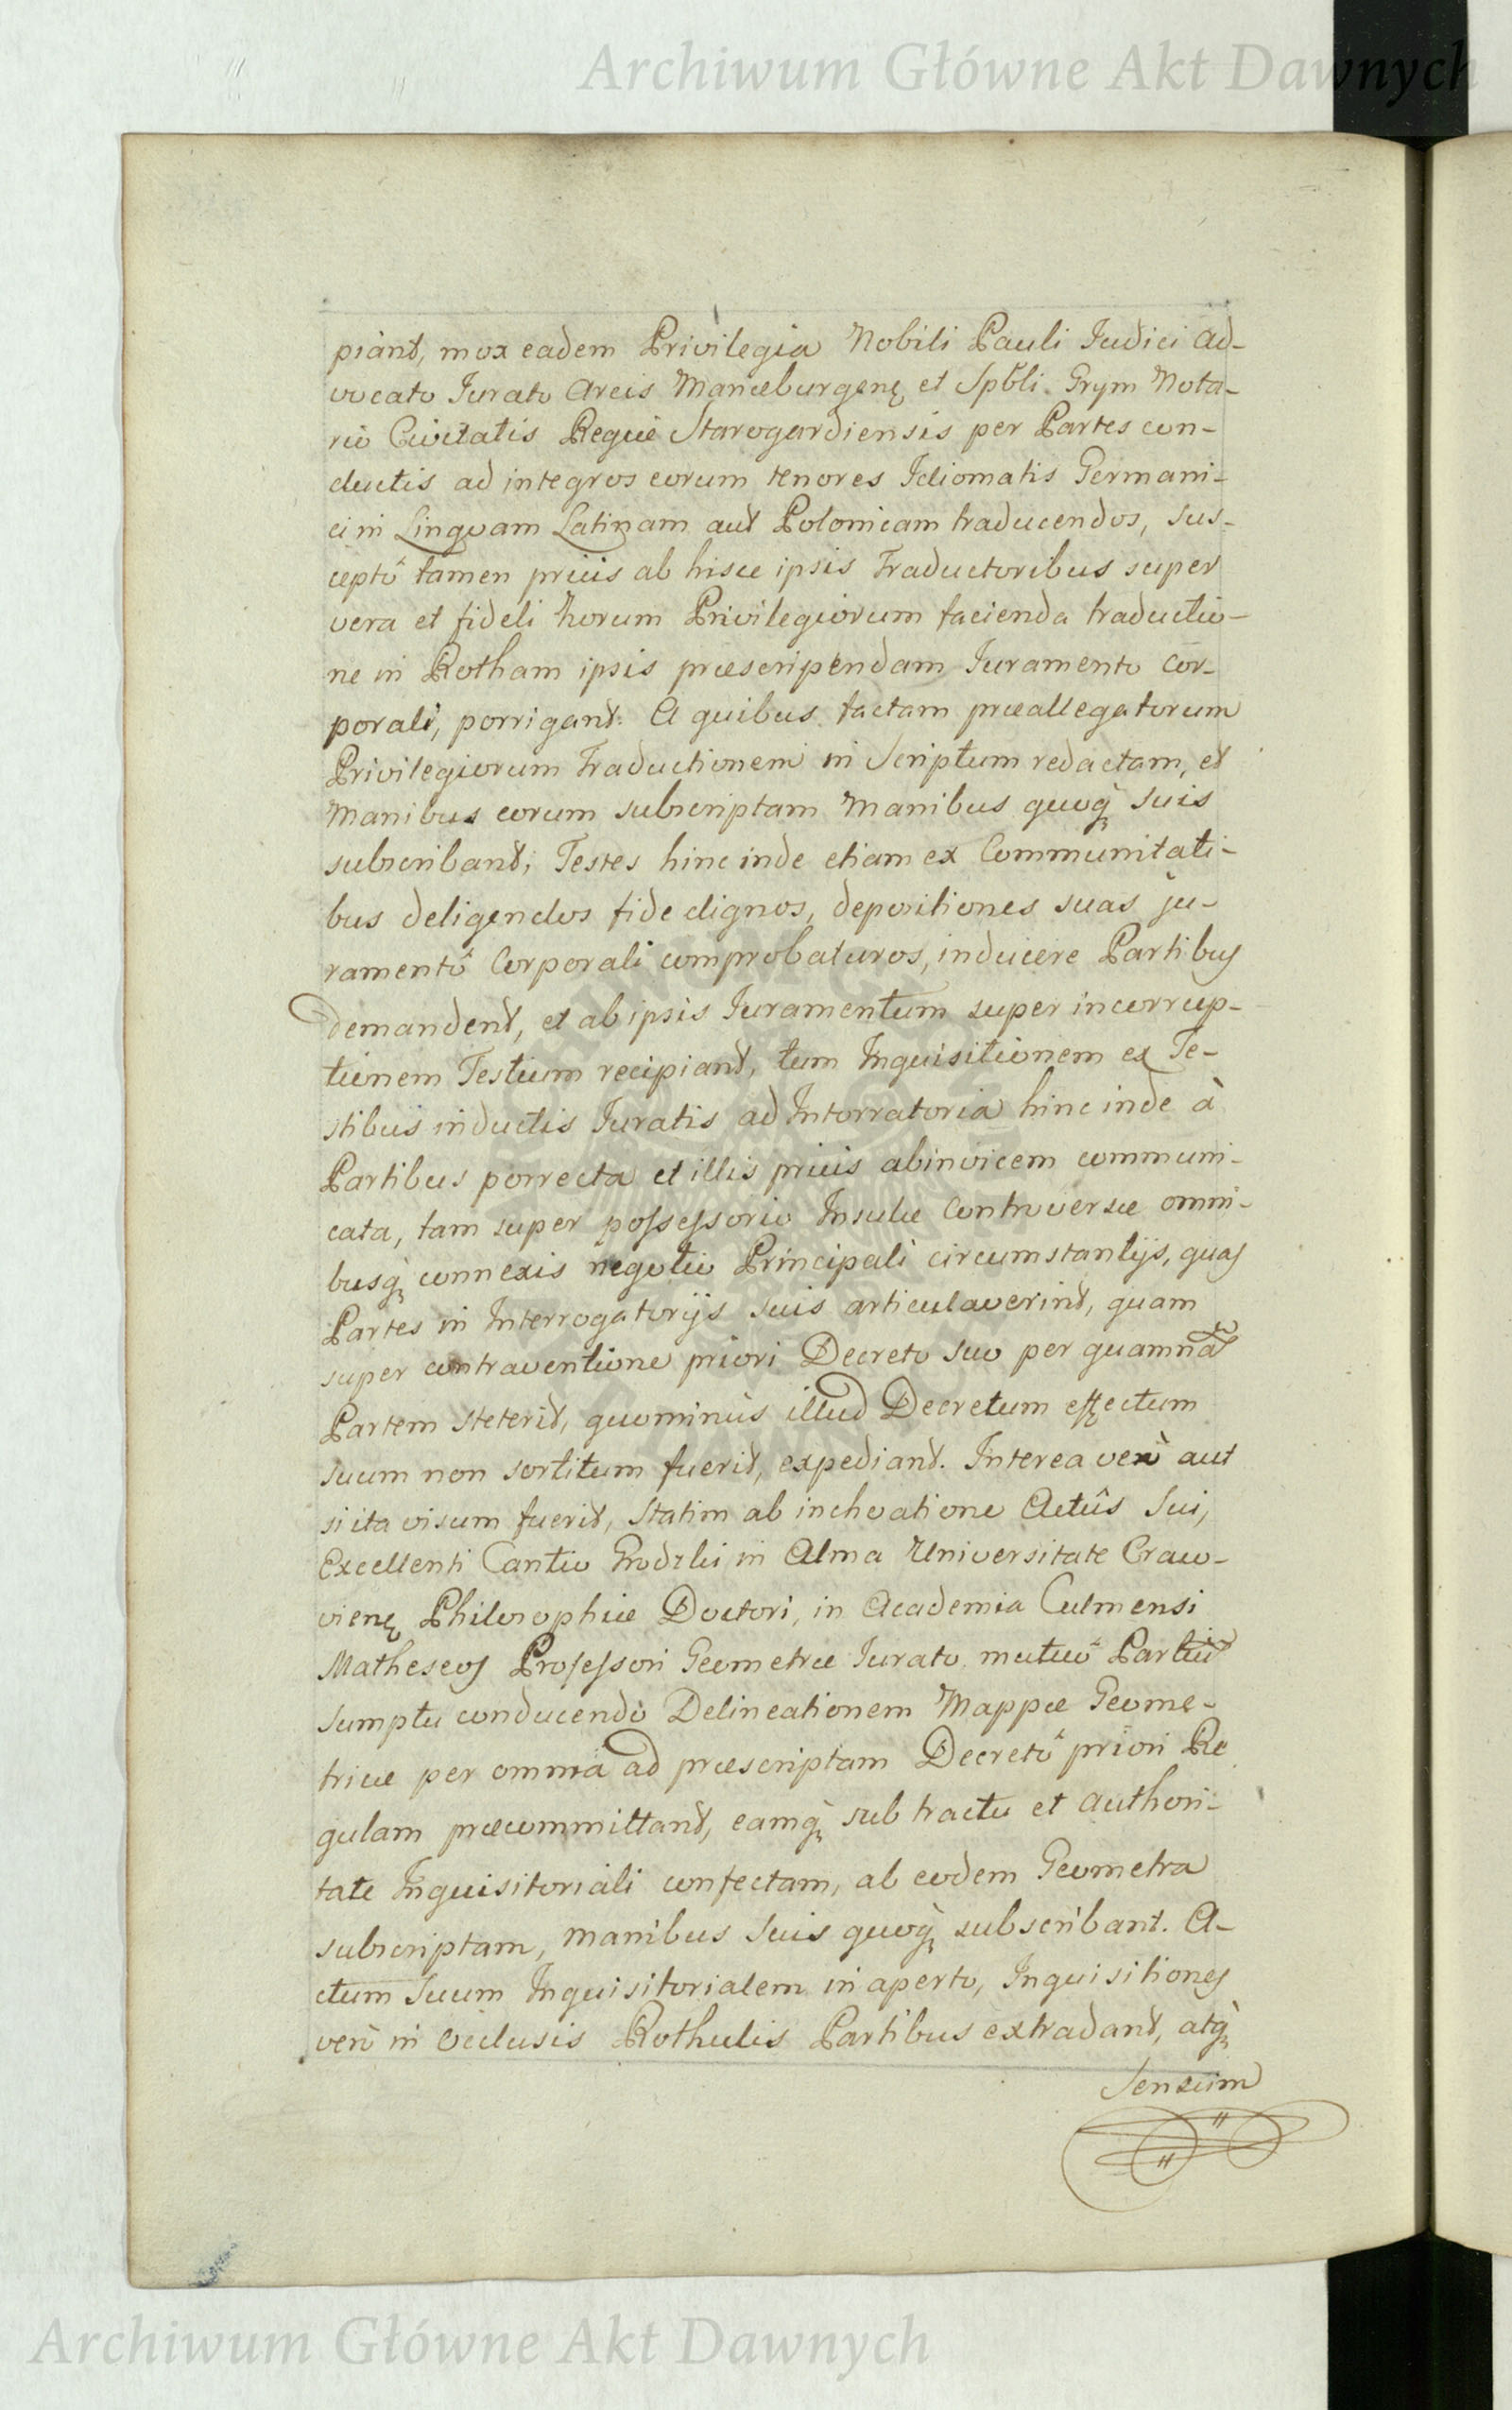 Archiwum Główne Akt Dawnych
piant, mox eadem Privilegia Nobili Pauli Iudici Ad-
vocato Iurato Arcis Mariæburgenę et Spbli Grym Nota-
rio Civitatis Regiæ Starogardiensis per Partes con-
ductis ad integros eorum tenores Idiomatis Germani-
ci in Linguam Latinam aut Polonicam traducendos, sus-
ceptô tamen priùs ab hisce ipsis Traductoribus super
vera et fideli horum Privilegiorum facienda traductio-
ne in Rotham ipsis præscripendam Iuramento Cor-
porali, porrigant. A quibus factam præallegatorum
Privilegiorum Traductionem in Scriptum redactam, et
Manibus eorum subscriptam Manibus quoq̀ suis
subscribant; Testes hinc inde etiam ex Communitati-
bus deligendos fide dignos, depositiones suas ju-
ramentô Corporali comprobaturos, inducere Partibus
demandent, et ab ipsis Iuramentum super incorrup-
tionem Testium recipiant, tum Inquisitionem ex Te-
stibus inductis Iuratis ad Intorratoria hinc inde à
Partibus porrecta et illis priùs abinvicem communi-
cata, tam super possessorio Insulæ Controversæ omni-
busq̀ connexis negotio Principali circumstantijs, quas
Partes in Interrogatorijs suis articulaverint, quam
super contraventione priori Decreto suo per quamnã
Partem steterit, quominùs illud Decretum effectum
suum non sortitum fuerit, expediant. Interea verò aut
si ita visum fuerit, statim ab inchoatione Actûs Sui,
Excellenti Cantio in Alma Universitate Craco-
vienę Philosophiæ Doctori, in Academia Culmensi
Matheseos Professori Geometræ Iurato mutuô Partiũ
sumptu conducendo Delineationem Mappæ Geome-
tricæ per omnia ad præscriptam Decretô priori Re
gulam præcommittant, eamq̀ sub tractu et Authori-
tate Inquisitoriali confectam, ab eodem Geometra
subscriptam, Manibus suis quoq̀ subscribant. A-
ctum Suum Inquisitorialem in aperto, Inquisitiones
verò in Oclusis Rothulis Partibus extradant, atq̀
Sensum
Archiwum Główne Akt Dawnych